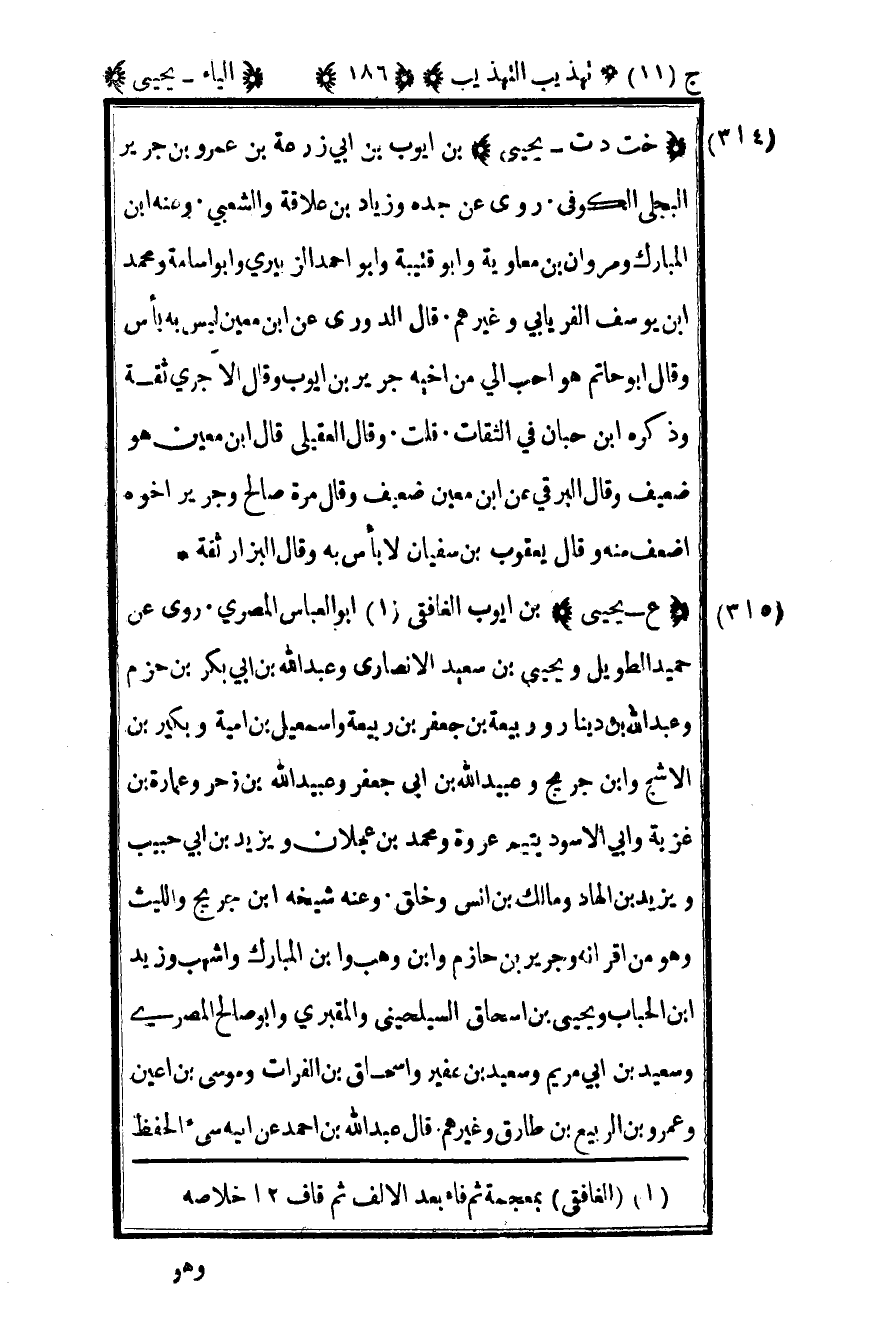 ج (١١) تهذيب التهذيب ﴿١٨٦﴾ الياء ـ يحيى
(٣١٤) ﴿خت د ت ـ يحيى﴾ بن ايوب بن ابي زرعة بن عمرو بن جرير
البجلى الكوفى ٠ روى عن جده وزياد بن علاقة والشعبي ٠ وعنه ابن
المبارك ومروان بن معاوية وابو قتيبة وابو احمد الزبيري وابو اسامة ومحمد
ابن يوسف الفريابي وغيرهم ٠ قال الدورى عن ابن معين ليس به بأس
وقال ابو حاتم هو احب الي من اخيه جرير بن ايوب وقال الآجري ثقة
وذكره ابن حبان في الثقات ٠ قلت ٠ وقال العقيلى قال ابن معين هو
ضعيف وقال البرقي عن ابن معين ضعيف وقال مرة صالح وجرير اخوه
اضعف منه وقال يعقوب بن سفيان لا بأس به وقال البزار ثقة *
(٣١٥) ﴿ع ـ يحيى﴾ بن ايوب الغافقى (١) ابو العباس المصري ٠ روى عن
حميد الطويل ويحيى بن سعيد الانصارى وعبدالله بن ابي بكر بن حزم
وعبدالله بن دينار وربيعة بن جعفر بن ربيعة واسمعيل بن امية وبكير بن
الاشج وابن جريج وعبيدالله بن ابى جعفر وعبيدالله بن زحر وعمارة بن
غزية وابي الاسود يتيم عروة ومحمد بن عجلان ويزيد بن ابي حبيب
ويزيد بن الهاد ومالك بن انس وخلق ٠ وعنه شيخه ابن جريج والليث
وهو من اقرانه وجرير بن حازم وابن وهب وابن المبارك واشهب وزيد
ابن الحباب ويحيى بن اسحاق السيلحينى والمقبري وابو صالح المصري
وسعيد بن ابي مريم وسعيد بن عفير واسحاق بن الفرات وموسى بن اعين
وعمرو بن الربيع بن طارق وغيرهم ٠ قال عبدالله بن احمد عن ابيه سىء الحفظ
(١) (الغافقى) بمعجمة ثم فاء بعد الالف ثم قاف ١٢ خلاصه
وهو